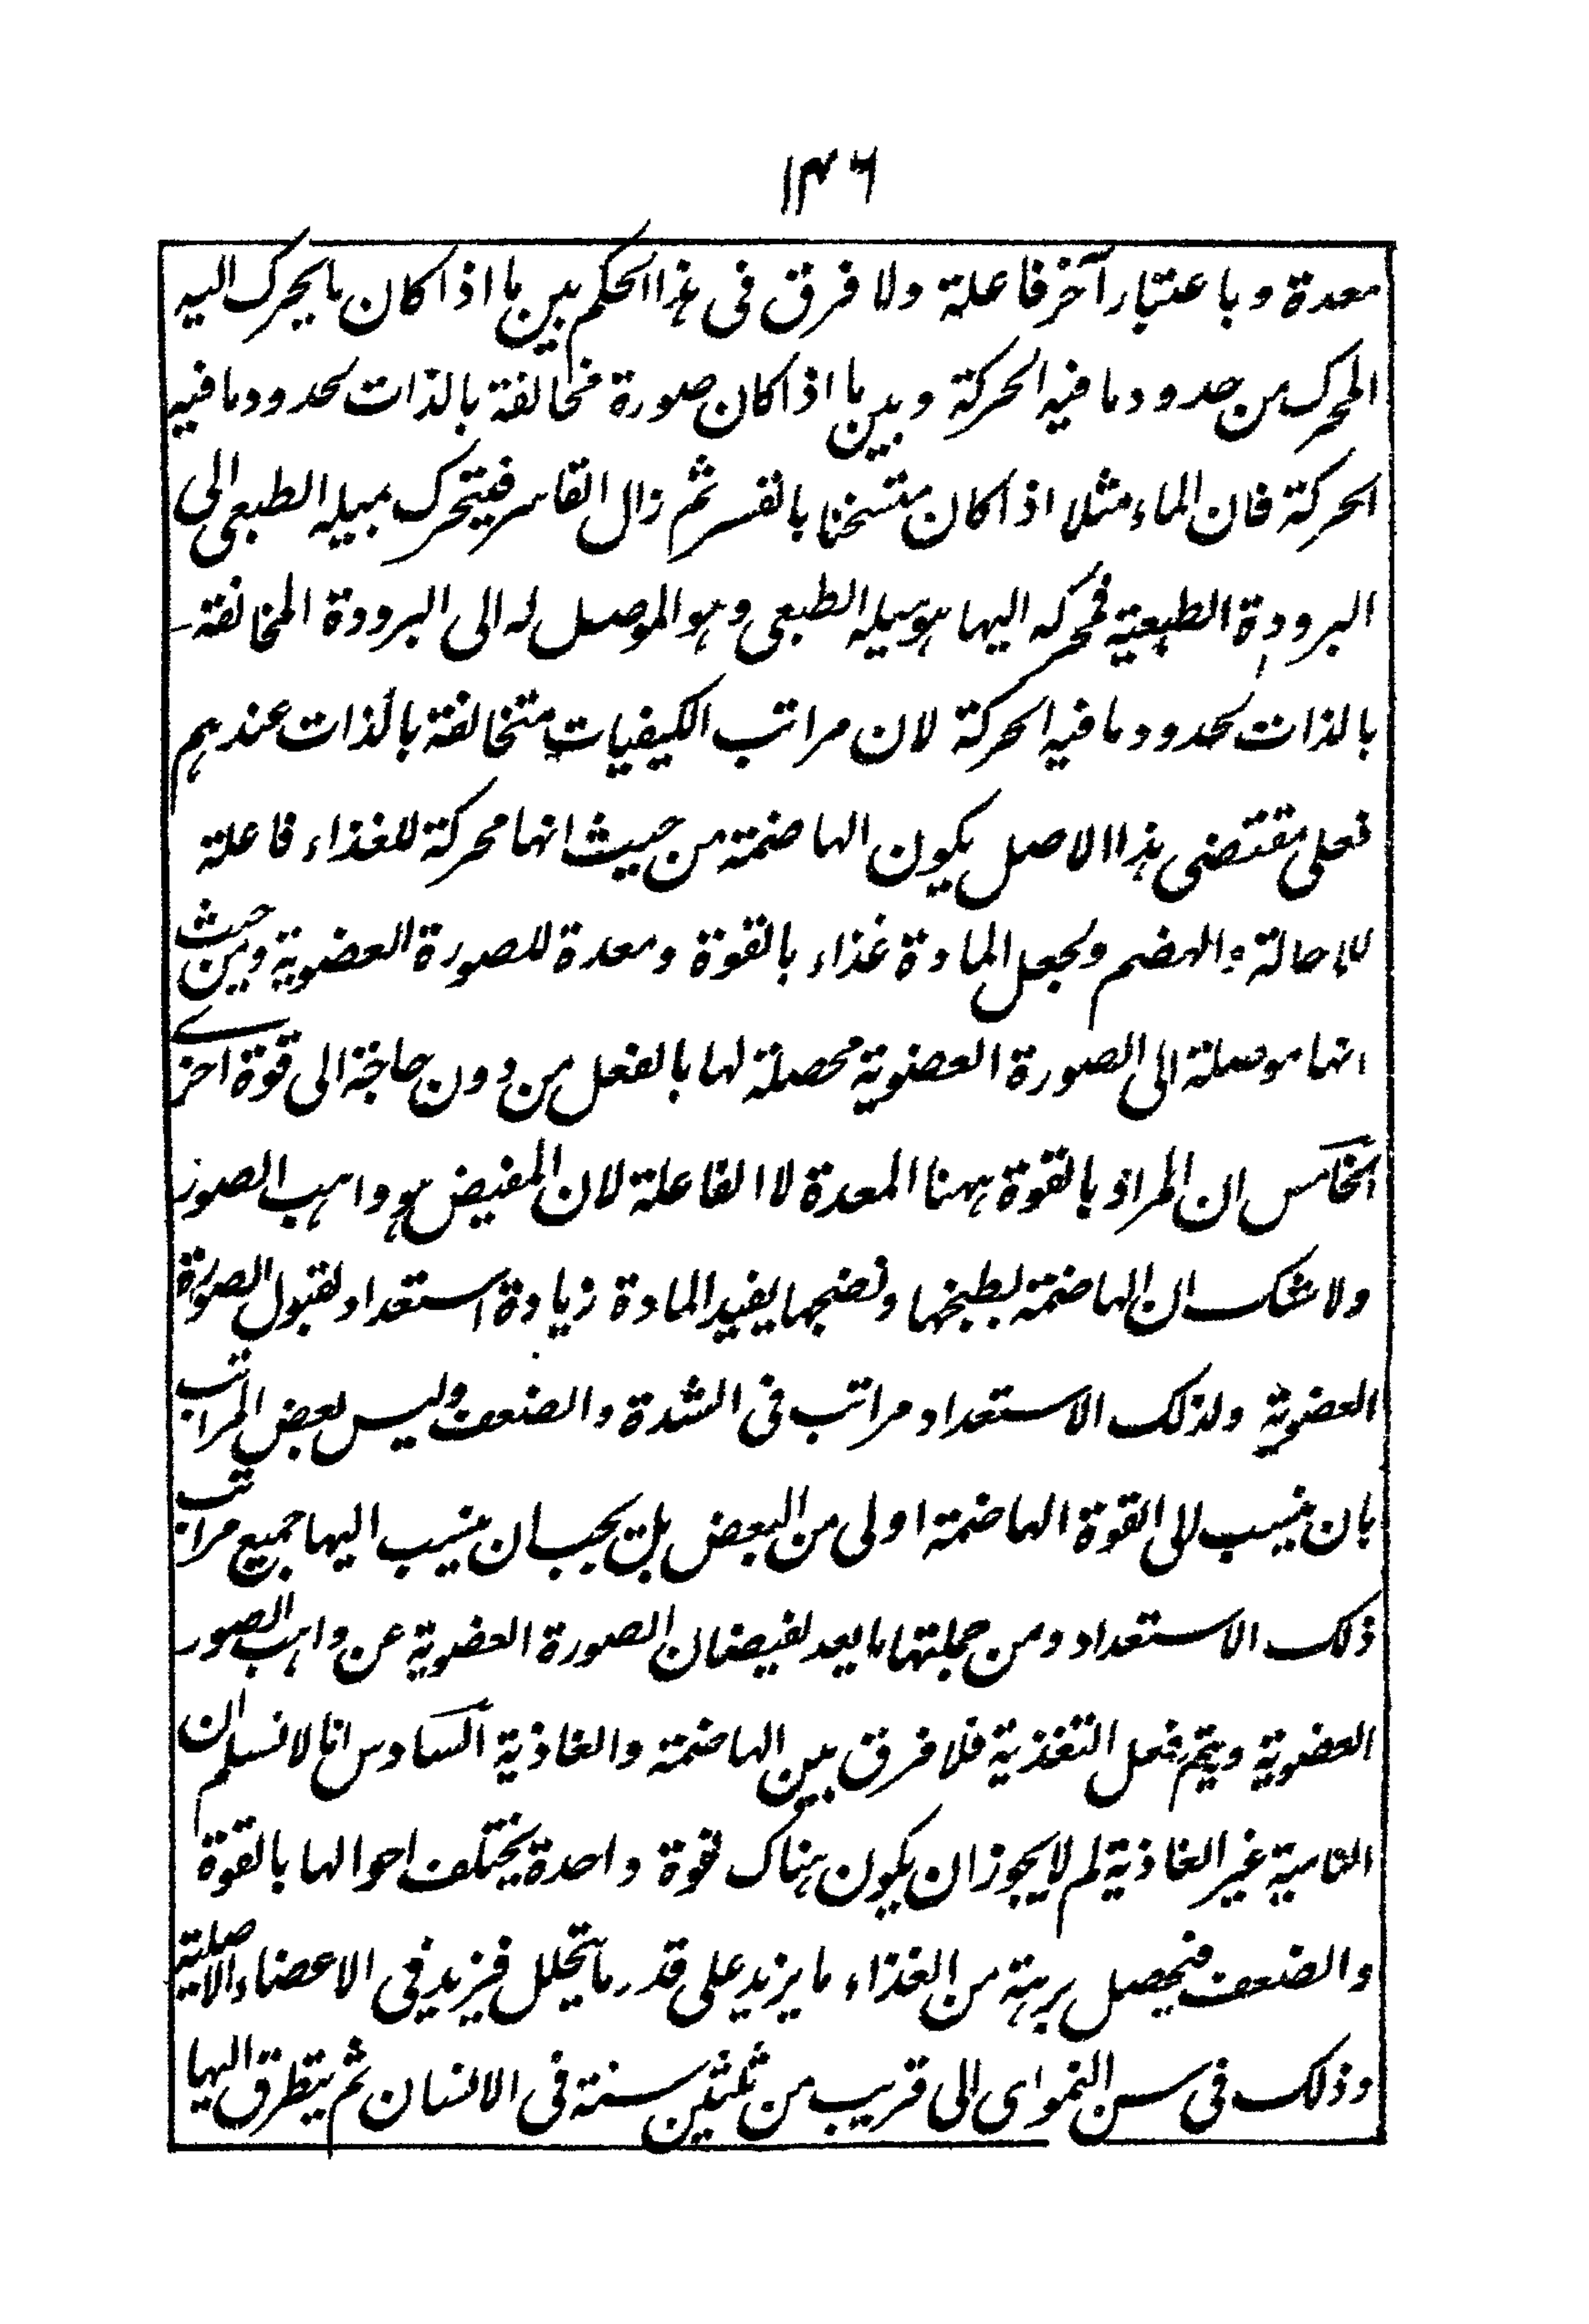 ۱۴۶
معدة وباعتبار آخر فاعلة ولا فرق فی هذا الحکم بین ما اذا کان ما یحرک الیه
المحرک من حدود ما فیه الحرکة وبین ما اذا کان صورة مخالفة بالذات لحدود ما فیه
الحرکة فان الماء مثلا اذا کان متسخنا بالقسر ثم زال القاسر فیتحرک بمیله الطبعی الی
البرودة الطبعیة فمحرکه الیها هو میله الطبعی وهو الموصل له الی البرودة المخالفة
بالذات لحدود ما فیه الحرکة لان مراتب الکیفیات متخالفة بالذات عندهم
فعلی مقتضی هذا الاصل یکون الهاضمة من حیث انها محرکة للغذاء فاعلة
للاحالة والهضم ولجعل المادة غذاء بالقوة ومعدة للصورة العضویة ومن حیث
انها موصلة الی الصورة العضویة محصلة لها بالفعل من دون حاجة الی قوة اخری
الخامس ان المراد بالقوة ههنا المعدة لا الفاعلة لان المفیض هو واهب الصور
ولا شک ان الهاضمة بطبخها ونضجها یفید المادة زیادة استعداد لقبول الصورة
العضویة ولذلک الاستعداد مراتب فی الشدة والضعف ولیس بعض المراتب
بان ینسب الی القوة الهاضمة اولی من البعض بل یجب ان ینسب الیها جمیع مراتب
ذلک الاستعداد ومن جملتها ما یعد لفیضان الصورة العضویة عن واهب الصور
العضویة ویتم فعل التغذیة فلا فرق بین الهاضمة والغاذیة السادس انا لا نسلم ان
النامیة غیر الغاذیة لم لا یجوز ان یکون هناک قوة واحدة یختلف احوالها بالقوة
والضعف فیحصل برهة من الغذاء ما یزید علی قدر ما یتحلل فیزید فی الاعضاء الاصلیة
وذلک فی سن النمو ای الی قریب من ثلثین سنة فی الانسان ثم یتطرق الیها